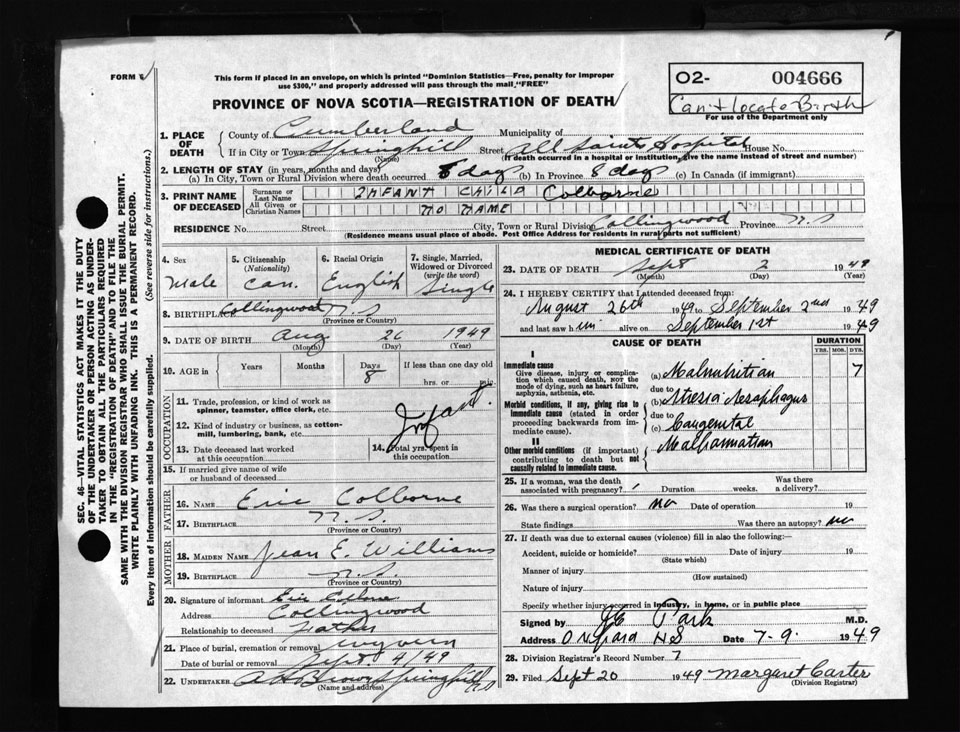 FORM
This form if placed in an envelope, on which is printed "Dominion Statistics—Free, penalty for improper
use $300," and properly addressed will pass through the mail "FREE"
PROVINCE OF NOVA SCOTIA—REGISTRATION OF DEATH
O2- 004666
Can't locate Birth
For use of the Department only
1. PLACE OF DEATH
County of Cumberland Municipality of
If in City or Town Springhill Street All Saints Hospital House No.
(Name) (If death occurred in a hospital or institution, give the name instead of street and number)
2. LENGTH OF STAY (in years, months and days)
(a) In City, Town or Rural Division where death occurred 8 days (b) In Province 8 days (c) In Canada (if immigrant)
3. PRINT NAME OF DECEASED
Surname or Last Name INFANT CHILD Colborne
All Given or Christian Names NO NAME
RESIDENCE No. Street City, Town or Rural Division Collingwood Province N.S
(Residence means usual place of abode. Post Office Address for residents in rural parts not sufficient)
4. Sex Male
5. Citizenship (Nationality) Can.
6. Racial Origin English
7. Single, Married, Widowed or Divorced (write the word) Single
8. BIRTHPLACE Collingwood N.S
(Province or Country)
9. DATE OF BIRTH Aug 26 1949
(Month) (Day) (Year)
10. AGE in Years Months Days 8 If less than one day old hrs. or min.
OCCUPATION
11. Trade, profession, or kind of work as spinner, teamster, office clerk, etc.
Infant.
12. Kind of industry or business, as cotton-mill, lumbering, bank, etc.
13. Date deceased last worked at this occupation
14. Total yrs. spent in this occupation
15. If married give name of wife or husband of deceased
FATHER
16. NAME Eric Colborne
17. BIRTHPLACE N.S.
(Province or Country)
MOTHER
18. MAIDEN NAME Jean E. Williams
19. BIRTHPLACE N.S.
(Province or Country)
20. Signature of informant Eric Colborne
Address Collingwood
Relationship to deceased Father
21. Place of burial, cremation or removal Wyvern
Date of burial or removal Sept 4/49
22. UNDERTAKER A H Brown Springhill N.S
(Name and address)
MEDICAL CERTIFICATE OF DEATH
23. DATE OF DEATH Sept 2 1949
(Month) (Day)
24. I HEREBY CERTIFY that I attended deceased from:
August 26th 1949 to September 2nd 1949
and last saw him alive on September 1st 1949
CAUSE OF DEATH DURATION
YRS. MOS. DYS.
I
Immediate cause
Give disease, injury or complication which caused death, NOT the mode of dying, such as heart failure, asphyxia, asthenia, etc.
(a) Malnutrition 7
due to
Morbid conditions, if any, giving rise to immediate cause (stated in order proceeding backwards from immediate cause).
(b) Atresia Aesaphagus
due to
(c) Congenital
Malformation
II
Other morbid conditions (if important) contributing to death but not causally related to immediate cause.
25. If a woman, was the death associated with pregnancy? Duration weeks. Was there a delivery?
26. Was there a surgical operation? no Date of operation 19
State findings Was there an autopsy? no
27. If death was due to external causes (violence) fill in also the following:
Accident, suicide or homicide? Date of injury 19
(State which)
Manner of injury
(How sustained)
Nature of injury
Specify whether injury occurred in industry, in home, or in public place
Signed by Park M.D.
Address Oxford NS Date 7-9. 1949
28. Division Registrar's Record Number 7
29. Filed Sept 20 1949 Margaret Carter
(Division Registrar)
SEC. 46—VITAL STATISTICS ACT MAKES IT THE DUTY
OF THE UNDERTAKER OR PERSON ACTING AS UNDER-
TAKER TO OBTAIN ALL THE PARTICULARS REQUIRED
IN THE "REGISTRATION OF DEATH" AND TO FILE THE
SAME WITH THE DIVISION REGISTRAR WHO SHALL ISSUE THE BURIAL PERMIT.
WRITE PLAINLY WITH UNFADING INK. THIS IS A PERMANENT RECORD.
Every item of information should be carefully supplied. (See reverse side for instructions.)